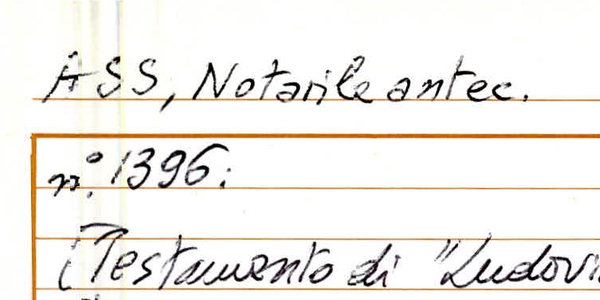 ASS, Notarile antec.
n.° 1396:
(Testamento di "Ludovi